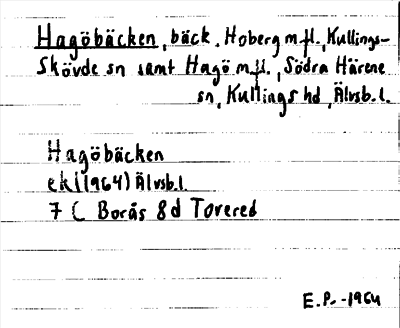 Hagöbäcken, bäck, Hoberg m fl., Kullings-
Skövde sn samt Hagö m.fl., Södra Härene
sn, Kullings hd, Älvsb.l.
Hagöbäcken
ek (1964) Älvsb.l.
7 C Borås 8d Torered
E.P. -1964